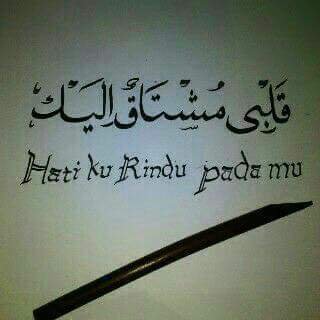 قَلْبِى مُشْتَاقٌ اِلَيْكَ
Hati ku Rindu pada mu